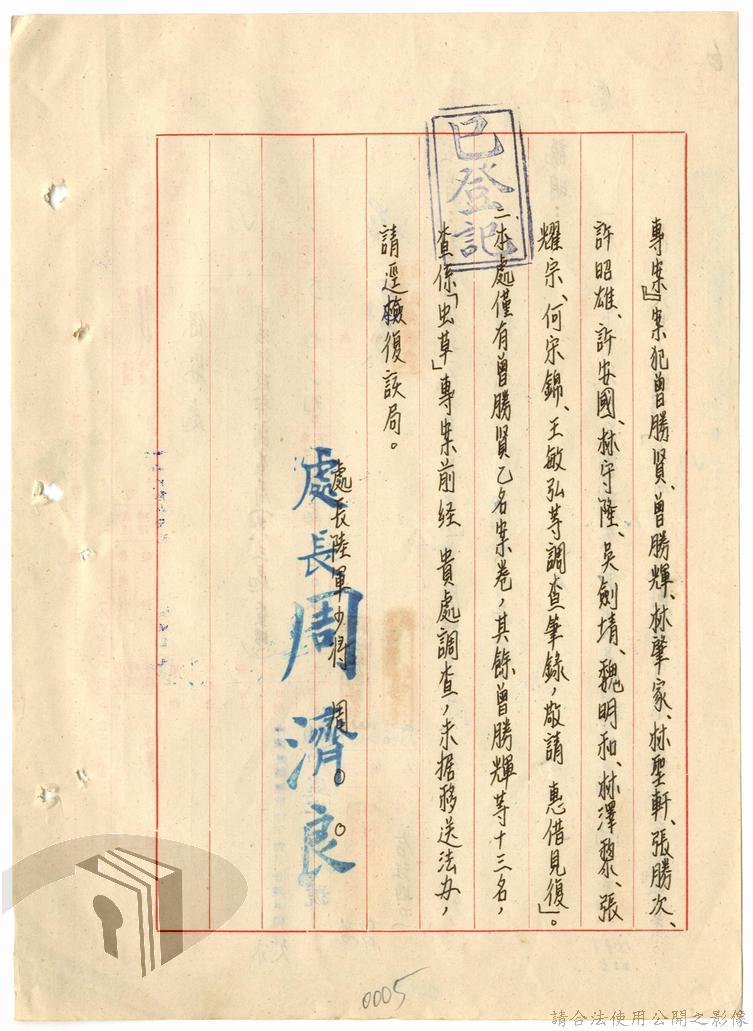 專案』案犯曾勝賢、曾勝輝、林肇家、林聖軒、張勝次、
許昭雄、許安國、林守隆、吳劍堉、魏明和、林澤黎、張
耀宗、何宋錦、王敏弘等調查筆錄，敬請　惠借見復」。
二、本處僅有曾勝賢乙名案卷，其餘曾勝輝等十三名，
查係「虫草」專案前経　貴處調查，未据移送法办，
請逕檢復該局。
處長陸軍少將　周○○
處長周濟良
已登記
0005
請合法使用公開之影像